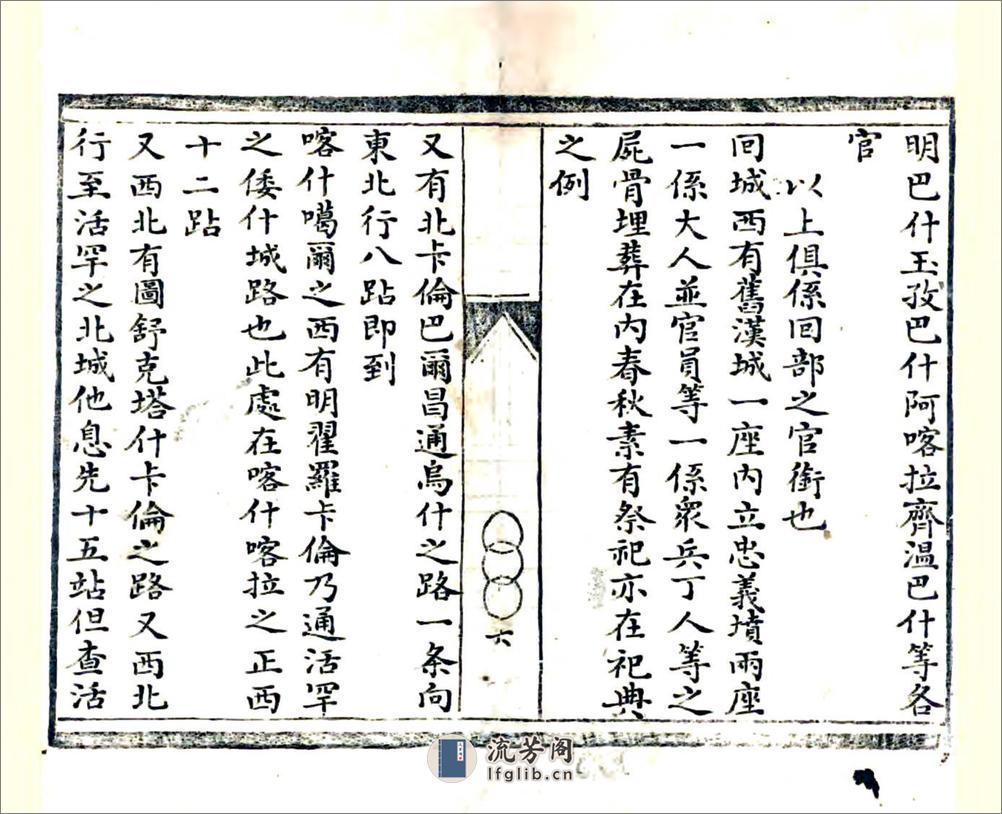 明巴什玉孜巴什阿喀拉齊温巴什等各
官
以上俱係回部之官銜也
回城西有舊漢城一座内立忠義墳兩座
一係大人並官員等一係衆兵丁人等之
屍骨埋葬在内春秋素有祭祀亦在祀典
之例
六
又有北卡倫巴爾昌通烏什之路一条向
東北行八跕即到
喀什噶爾之西有明瞿羅卡倫乃通活罕
之倭什城路也此處在喀什喀拉之正西
十二跕
又西北有圖舒克塔什卡倫之路又西北
行至活罕之北城他息先十五站但查活
流芳阁
lfglib.cn